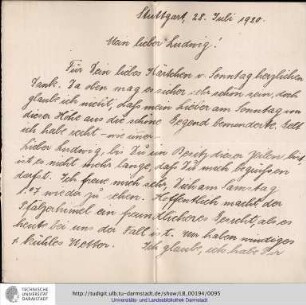 Stuttgart, 28. Juli 1920.
Mein lieber Ludwig!
Für Dein liebes Kärtchen v. Sonntag herzlichen
Dank. Da oben mag es sicher sehr schön sein, doch
glaube ich nicht, daß man hier am Sonntag von
dieser Höhe aus die schöne Gegend bewunderte.
ich habe recht - wie immer
Lieber Ludwig, bis Du im Besitz dieser Zeilen bist
ist es nicht mehr lange, daß Du mich begrüßen
darfst. Ich freue mich sehr, Dich am Samstag
wieder zu sehen. Hoffentlich macht der
Pfälzerhimmel ein freundlicheres Gesicht, als es
heut bei uns der Fall ist. Wir haben windiges
u. kühles Wetter. Ich glaube, ich habe Dir
TECHNISCHE
UNIVERSITÄT
DARMSTADT
http://tudigit.ulb.tu-darmstadt.de/show/LB_00194/0095
Universitäts- und Landesbibliothek Darmstadt